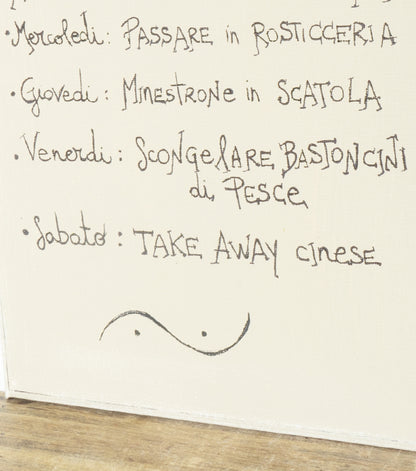 • Mercoledi: PASSARE in ROSTICCERIA
• Giovedi: MINESTRONe in SCATOLA
• Venerdi: SCONGeLARE BASTONCINI
di PESCe
• Sabato: TAKE AWAY cinese